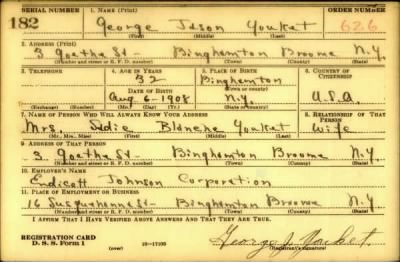 SERIAL NUMBER 1. NAME (Print) ORDER NUMBER
182 George Jason Youket 626
(First) (Middle) (Last)
2. ADDRESS (Print)
3 Goethe St- Binghamton Broome N.Y.
(Number and street or R. F. D. number) (Town) (County) (State)
3. TELEPHONE 4. AGE IN YEARS 5. PLACE OF BIRTH 6. COUNTRY OF CITIZENSHIP
32 Binghamton
DATE OF BIRTH (Town or county)
Aug 6-1908 N.Y. U.S.A.
(Exchange) (Number) (Mo.) (Day) (Yr.) (State or country)
7. NAME OF PERSON WHO WILL ALWAYS KNOW YOUR ADDRESS 8. RELATIONSHIP OF THAT PERSON
Mrs. Sadie Blanche Youket Wife
(Mr., Mrs., Miss) (First) (Middle) (Last)
9. ADDRESS OF THAT PERSON
3 Goethe St- Binghamton Broome N.Y.
(Number and street or R. F. D. number) (Town) (County) (State)
10. EMPLOYER'S NAME
Endicott Johnson Corporation
11. PLACE OF EMPLOYMENT OR BUSINESS
16 Susquehanna St- Binghamton Broome N.Y.
(Number and street or R. F. D. number) (Town) (County) (State)
I AFFIRM THAT I HAVE VERIFIED ABOVE ANSWERS AND THAT THEY ARE TRUE.
REGISTRATION CARD
D. S. S. Form 1 (over) 16-17105 George J. Youket.
(Registrant's signature)